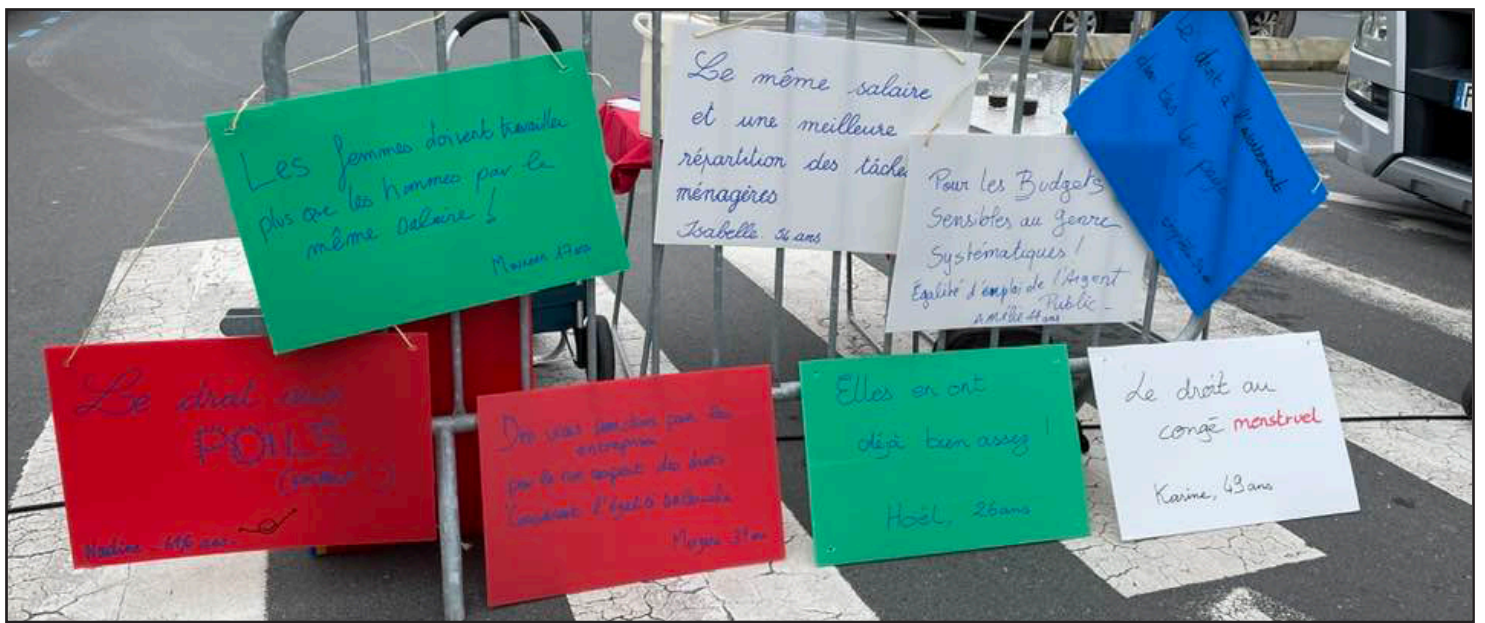 Les femmes doivent travailler
plus que les hommes par le
même salaire !
17 ans
Le même salaire
et une meilleure
répartition des tâches
ménagères
Isabelle 56 ans
Pour les Budgets
Sensibles au genre
Systématiques !
Égalité d'emploi de l'Argent
Public -
Amélie 44 ans
Le droit à l'avortement
dans tous les pays
Le droit aux
POILS
Nadine
Des vraies sanctions pour les
entreprises
par le non respect des droits
l'égalité salariale
Morgane 31 ans
Elles en ont
déjà bien assez !
Hoël, 26ans
Le droit au
congé menstruel
Karine, 49 ans